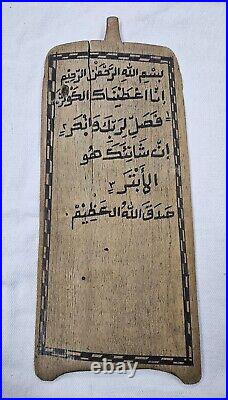 بسم الله الرحمن الرحيم
انا اعطيناك الكوثر
فصل لربك وانحر
ان شانئك هو
الابتر ٣
صدق الله العظيم